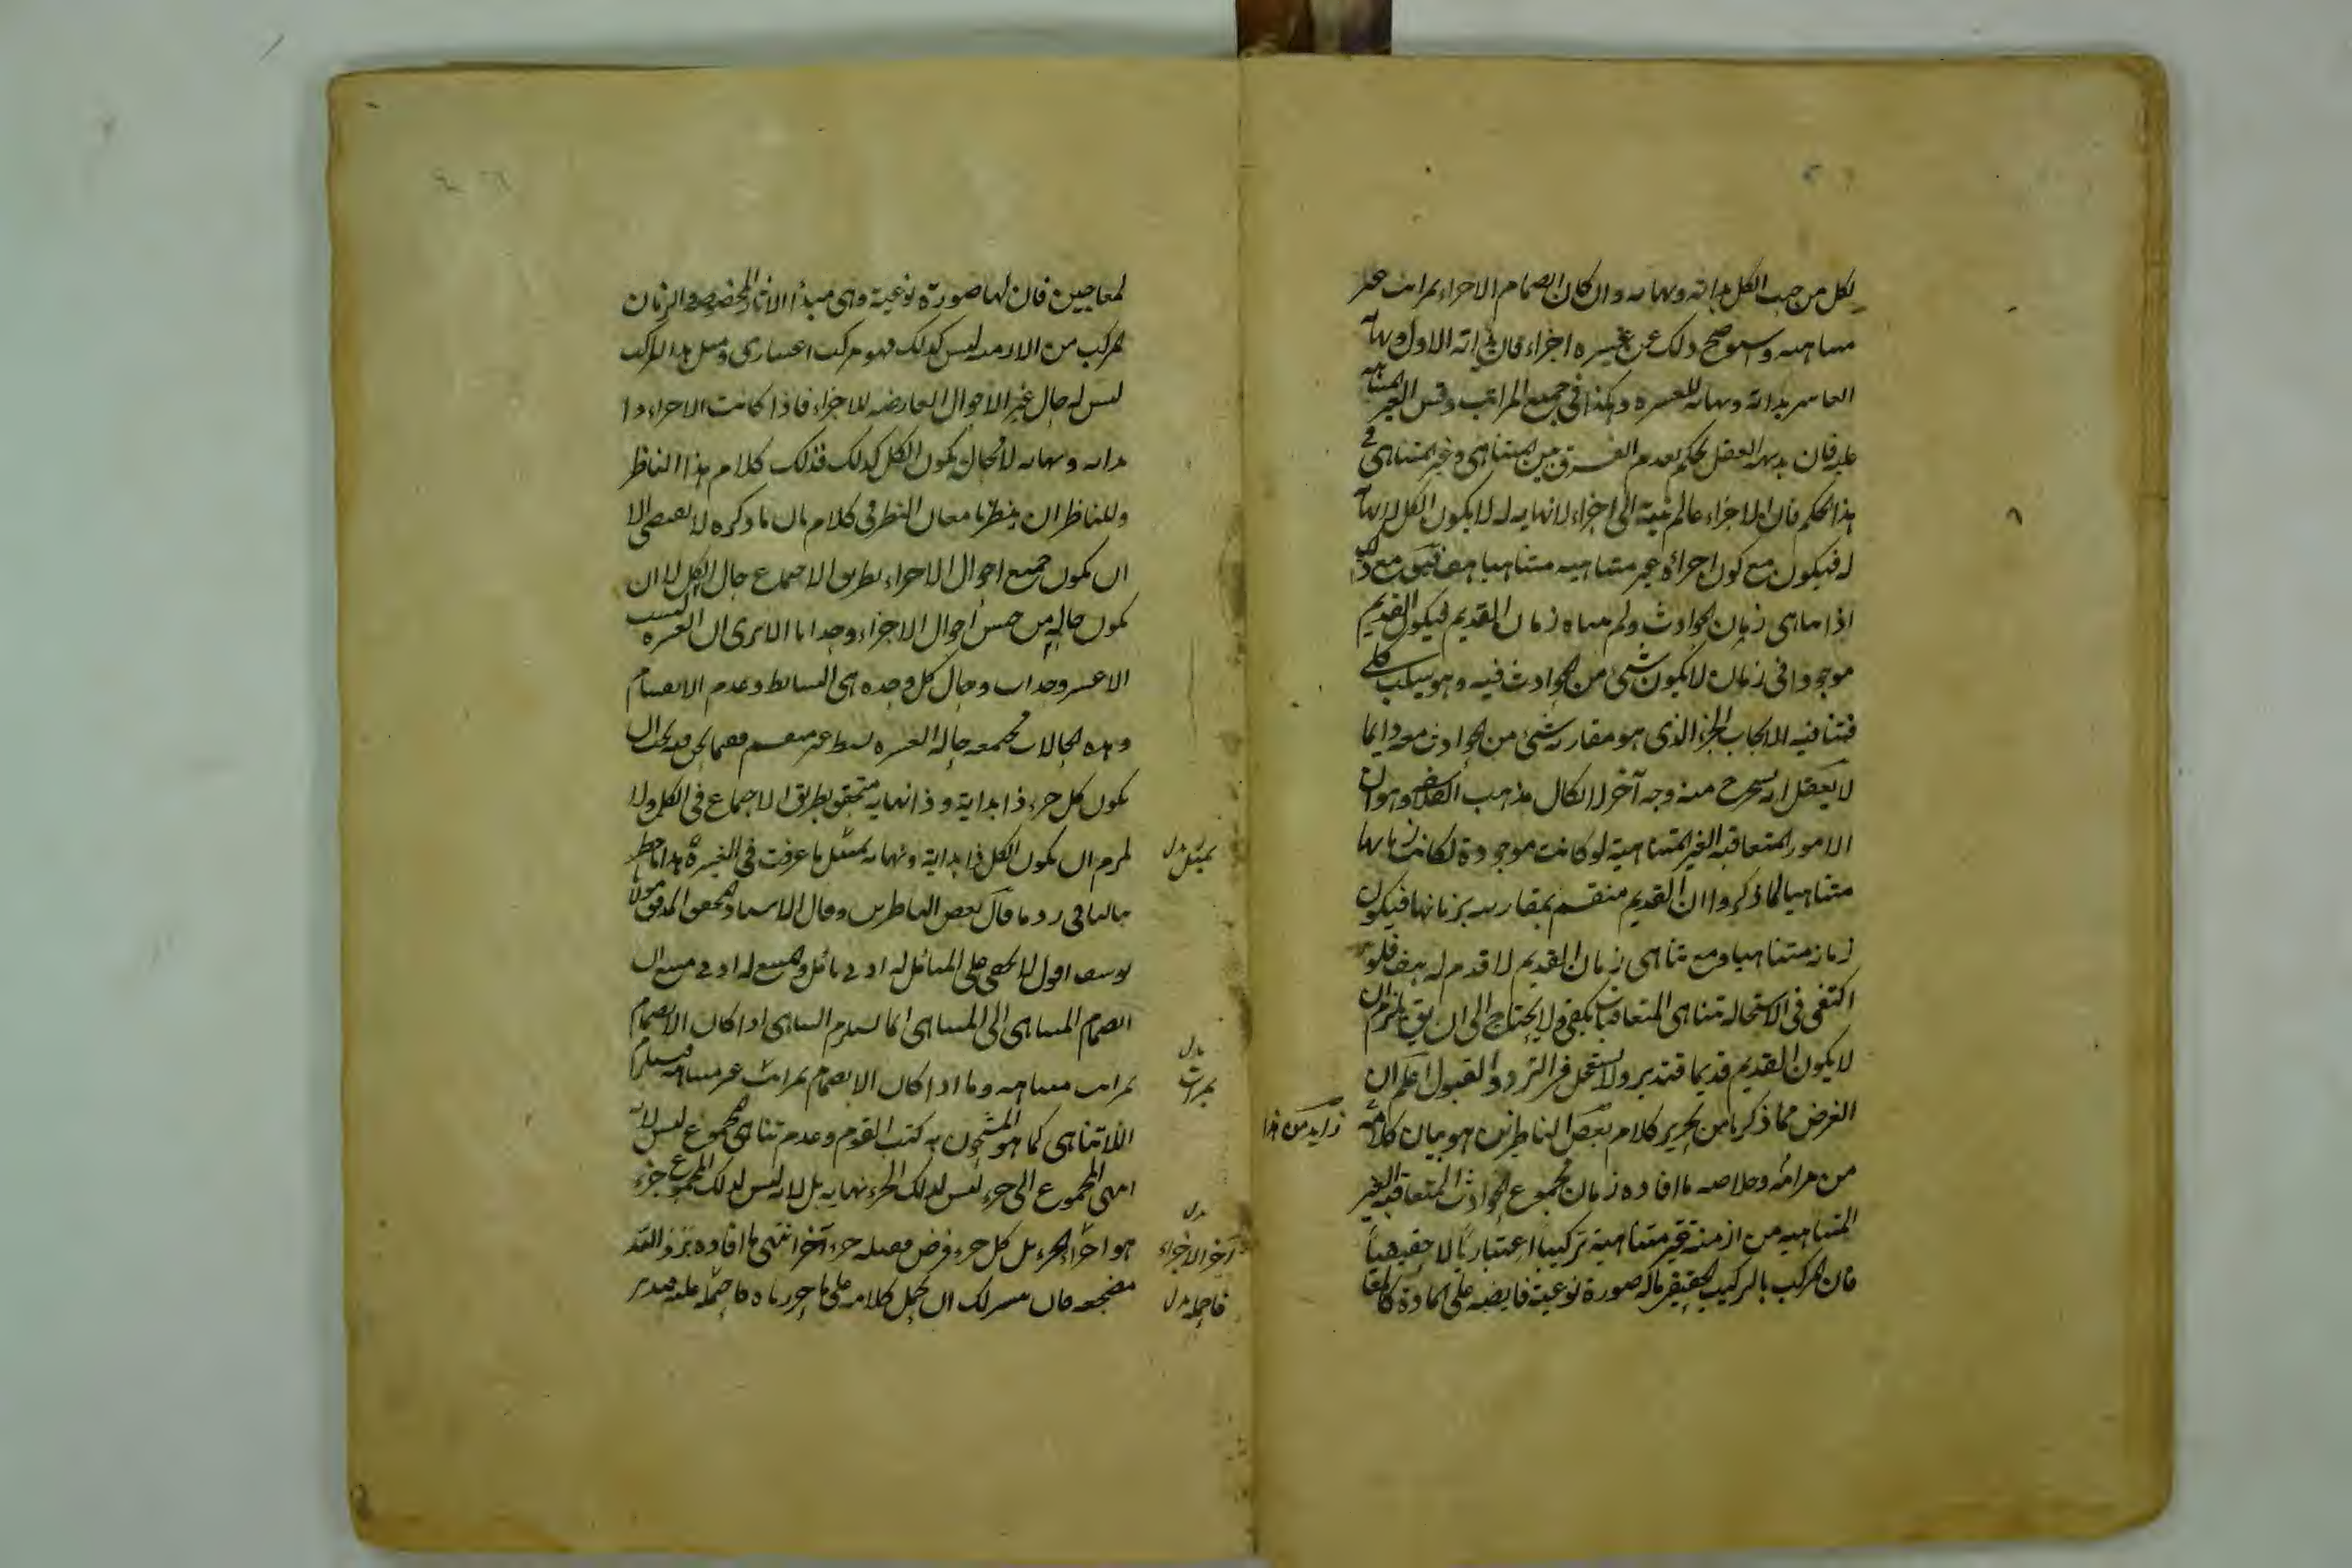 لكل من حيث الكل بداية ونهاية وان كان انضمام الاجزاء بمراتب غير
متناهية واستوضح ذلك عن عشرة اجزاء فان بداية الاول ونهاية
العاشر بداية ونهاية للعشرة وهكذا في جميع المراتب وقس الغير المتناهية
عليه فان بديهة العقل يحكم بعدم الفرق بين المتناهي وغير المتناهي في
هذا الحكم فان الاجزاء ما لم ينته الى اجزاء لا نهاية له لا يكون الكل لا نهاية
له فيكون مع كون اجزائه غير متناهية متناهيا هف فيق مع ذلك
اذا تناهى زمان الحوادث ولم يتناه زمان القديم فيكون القديم
موجودا في زمان لا يكون شئ من الحوادث فيه وهو سلب كلي
فتنافيه الايجاب الجزئي الذي هو مقارنة شئ من الحوادث معه دايما
لا يعقل انه يستخرج منه وجه آخر لابطال مذهب الفلاسفة وهو ان
الامور المتعاقبة الغير المتناهية لو كانت موجودة لكانت زمانها
متناهيا لما ذكروا ان القديم منقسم بمقارنته بزمانها فيكون
زمانه متناهيا ومع تناهي زمان القديم لا قدم له هف فلو
اكتفى في الاستحالة تناهي المتعاقبات يكفي ولا يحتاج الى ان يق يلزم ان
لا يكون القديم قديما فتدبر ولا تستعجل في الرد والقبول اعلم ان
الغرض مما ذكرنا من تحرير كلام بعض الناظرين هو بيان كلامه
زايد من هذا
من مرامه وخلاصة ما افاده زمان مجموع الحوادث المتعاقبة الغير
المتناهية من ازمنة غير متناهية تركيبا اعتباريا لا حقيقيا
فان المركب بالتركيب الحقيقي ماله صورة نوعية فايضه على المادة كالمعا
لمعاجين فان لها صورة نوعية وهي مبدأ الآثار المخصوصة والزمان
المركب من الازمنة ليس كذلك فهو مركب اعتباري ومثل هذا المركب
ليس له حال غير الاحوال العارضة للاجزاء فاذا كانت الاجزاء ذا
بداية ونهاية لا محال يكون الكل كذلك فذلك كلام هذا الناظر
وللناظر ان ينظر بامعان النظر في كلام بان ما ذكره لا يقتضي الا
ان يكون جميع احوال الاجزاء بطريق الاجتماع حال الكل لا ان
يكون حاله من جنس احوال الاجزاء وحدانا الا ترى ان العشرة ليست
الا عشر وحدات وحال كل وحدة هي البساطة وعدم الانقسام
وهذه الحالات مجتمعة حالة العشرة بسيط غير منقسم ففيما نحن فيه نختار ان
يكون كل جزء ذا بداية وذا نهاية متحقق بطريق الاجتماع في الكل ولا
يلزم ان يكون الكل ذا بداية ونهاية بمثل ما عرفت في العشرة هذا ما خطر
بمثل بدل
ببالنا في رد ما قال بعض الناظرين وقال الاستاد المحقق المدقق مولانا
يوسف اقول لا يخفى على المتأمل له ادنى تأمل والمتتبع له ادنى تتبع ان
انضمام المتناهي الى المتناهي انما يستلزم التناهي اذا كان الانضمام
بمراتب متناهية وما اذا كان الانضمام بمراتب غير متناهية فيستلزم
بدل بمرات
اللاتناهي كما هو المشحون به كتب القوم وعدم تناهي المجموع ليس لانه
انتهى المجموع الى جزء ليس لذلك الجزء نهاية بل لانه ليس لذلك المجموع جزء
هو اخر الجزء بل كل جزء فرض فصله جزء آخر انتهى ما افاده نور الله
بدل آخر الاجزاء
مضجعه فان تيسر لك ان تحمل كلامه على ما حررناه فاحمله عليه فتدبر
فاحمله بدل